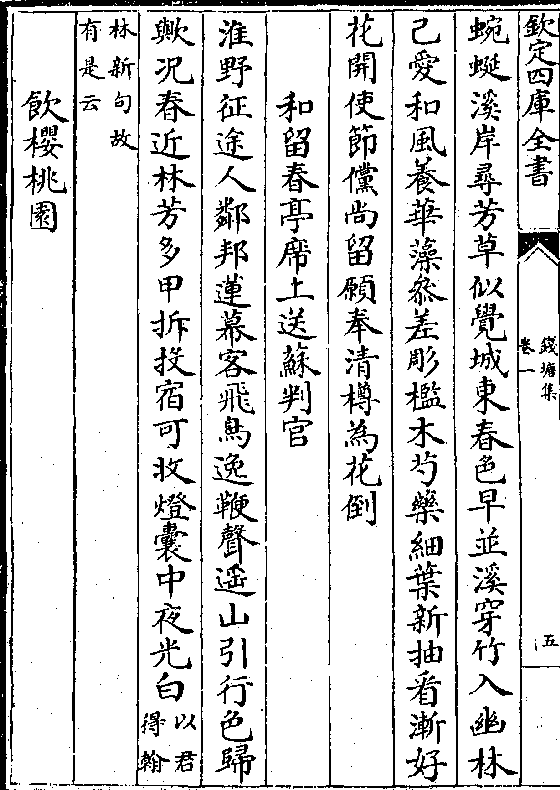 欽定四庫全書
錢塘集
卷一
五
蜿蜒溪岸尋芳草似覺城東春色早並溪穿竹入幽林
已愛和風養華藻叅差彫檻木芍藥細葉新抽看漸好
花開使節儻尚留願奉清樽為花倒
和留春亭席上送蘇判官
淮野征途人鄰邦蓮幕客飛鳥逸鞭聲遥山引行色歸
歟况春近林芳多甲拆投宿可收燈囊中夜光白以君
得翰
林新句故
有是云
飲櫻桃園